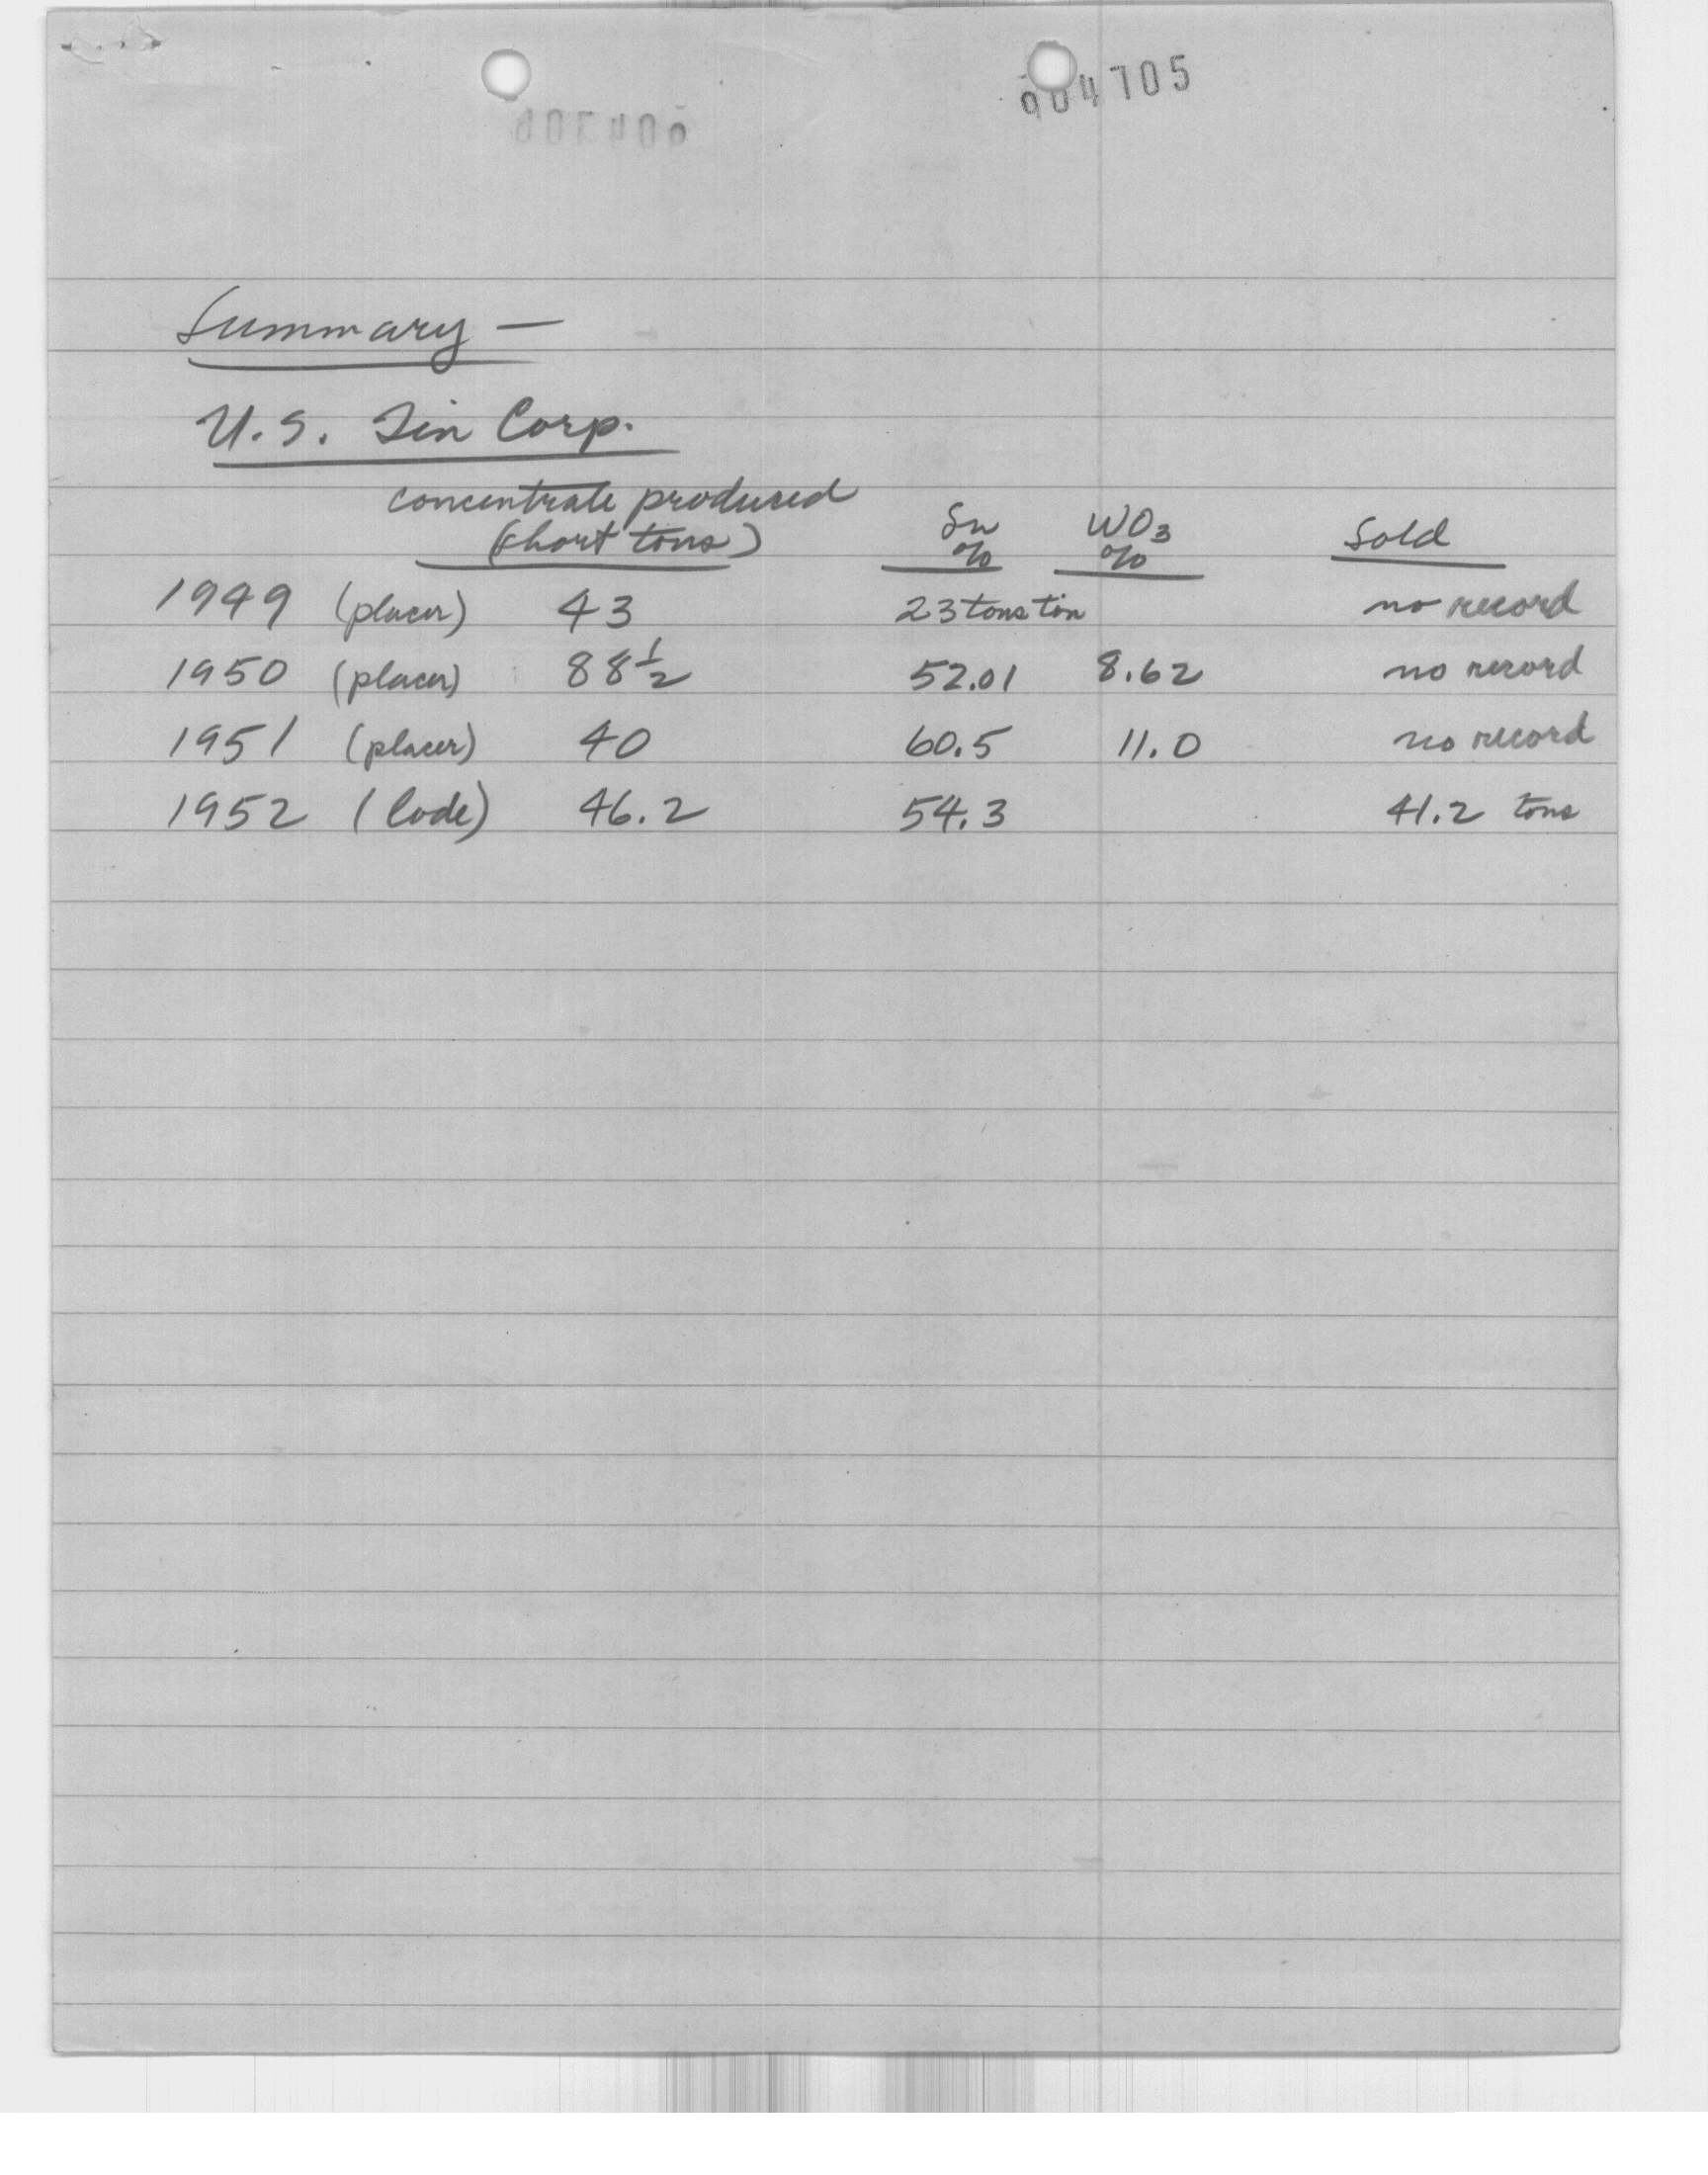 004705
Summary —
U.S. Tin Corp.
concentrate produced
(short tons) Sn % WO3 % Sold
1949 (placer) 43 23 tons tin no record
1950 (placer) 88 1/2 52.01 8.62 no record
1951 (placer) 40 60.5 11.0 no record
1952 (lode) 46.2 54.3 41.2 tons